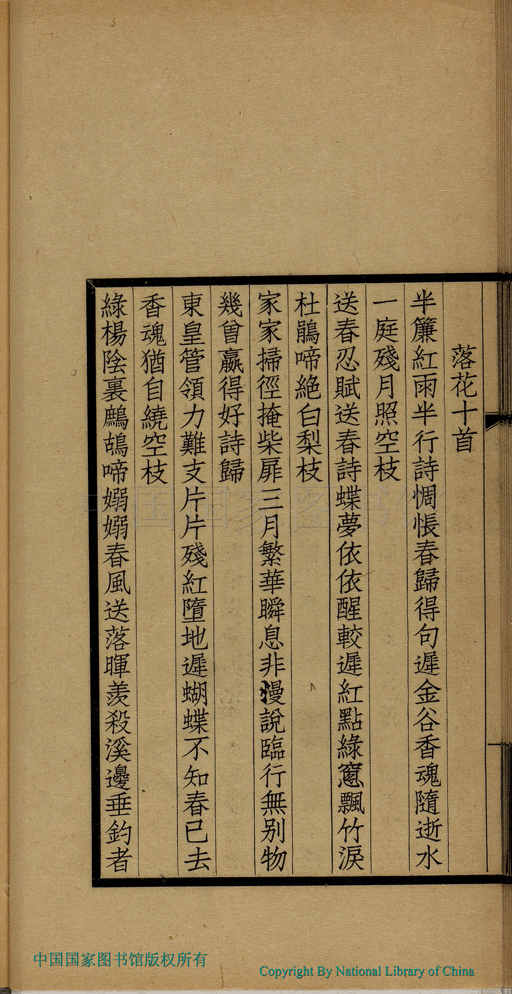 落花十首
半簾紅雨半行詩惆悵春歸得句遲金谷香魂隨逝水
一庭殘月照空枝
送春忍賦送春詩蝶夢依依醒較遲紅點綠窻飄竹淚
杜鵑啼絕白梨枝
家家掃徑掩柴扉三月繁華瞬息非漫說臨行無別物
幾曾贏得好詩歸
東皇管領力難支片片殘紅墮地遲蝴蝶不知春已去
香魂猶自繞空枝
綠楊陰裏鷓鴣啼嫋嫋春風送落暉羨殺溪邊垂釣者
中国国家图书馆
中国国家图书馆版权所有
Copyright By National Library of China